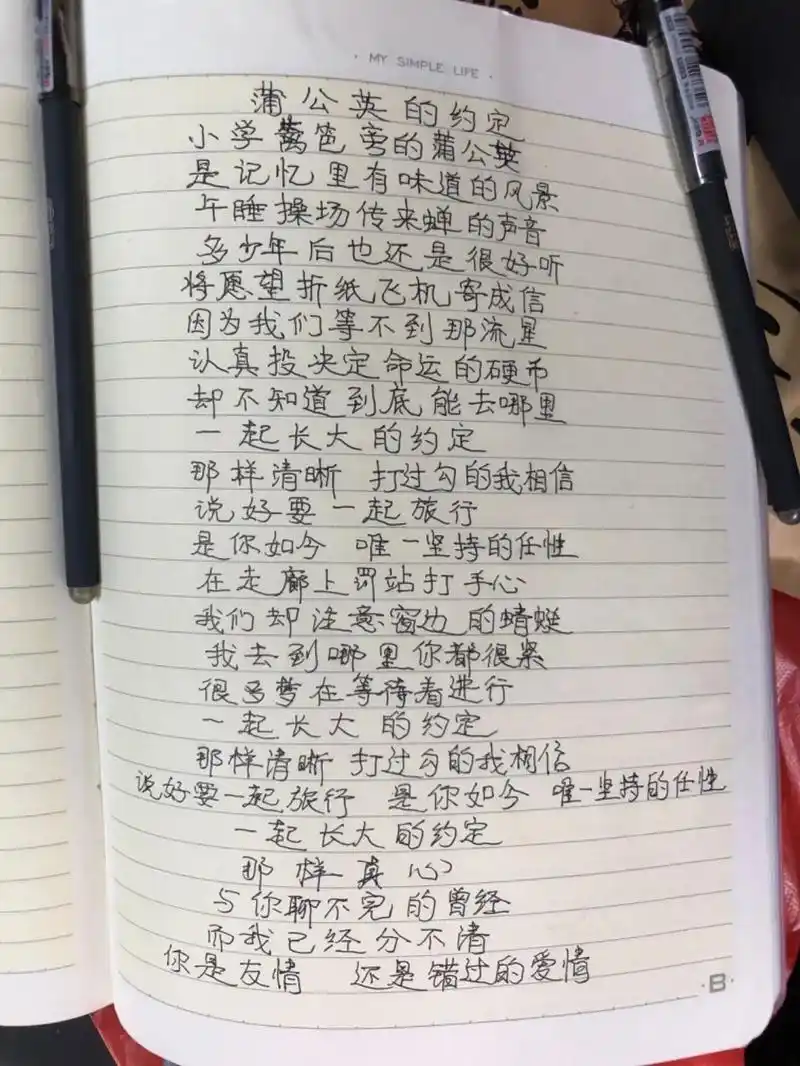 · MY SIMPLE LIFE ·
蒲公英的约定
小学篱笆旁的蒲公英
是记忆里有味道的风景
午睡操场传来蝉的声音
多少年后也还是很好听
将愿望折纸飞机寄成信
因为我们等不到那流星
认真投决定命运的硬币
却不知道到底能去哪里
一起长大的约定
那样清晰 打过勾的我相信
说好要一起旅行
是你如今 唯一坚持的任性
在走廊上罚站打手心
我们却注意窗边的蜻蜓
我去到哪里你都很紧
很多梦在等待着进行
一起长大的约定
那样清晰 打过勾的我相信
说好要一起旅行 是你如今 唯一坚持的任性
一起长大的约定
那样真心
与你聊不完的曾经
而我已经分不清
你是友情 还是错过的爱情
·B·